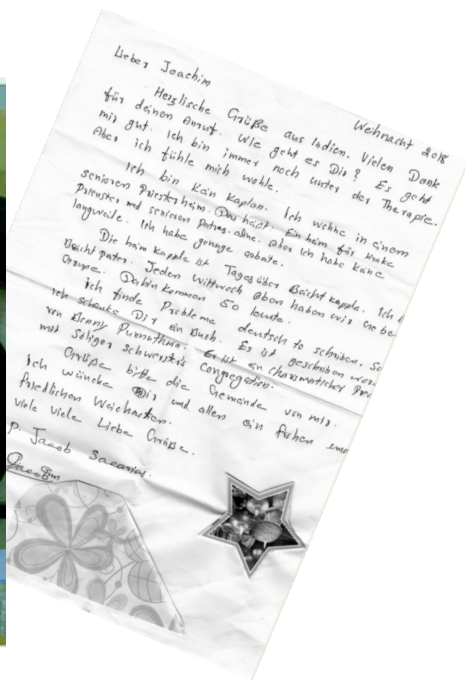 Weihnacht 2018
Lieber Joachim
Herzlische Grüße aus Indien. Vielen Dank
für deinen Anruf. Wie geht es Dir? Es geht
mir gut. Ich bin immer noch unter der Therapie.
Aber ich fühle mich wohle.
Ich bin kan kaplan. Ich wohne in einem
senioren Priesterheim. Das heist. Ein heim für kranke
Priester und senioren Patres. ohne. Aber ich habe kane
langweile. Ich habe genuge gebate.
Die heim kapple ist Tagesüber Beicht kapple. Ich
Beicht pater. Jeden Mittwoch Aben haben wir Gebe
Gruppe. Dahin kommen 50 leute.
Ich finde Probleme deutsch to schriben. So
ich schenke Dir ein Buch. Es ist geschriben
von Benny Punnathara. Er ist an charismaticher
mat Säliger schwester congregation.
Grüße bitte die Gemeinde von mir.
Ich wünche Dir und allen ein frohen
friedlichen Weichnarten.
Viele Viele Liebe Grüße.
P. Jacob